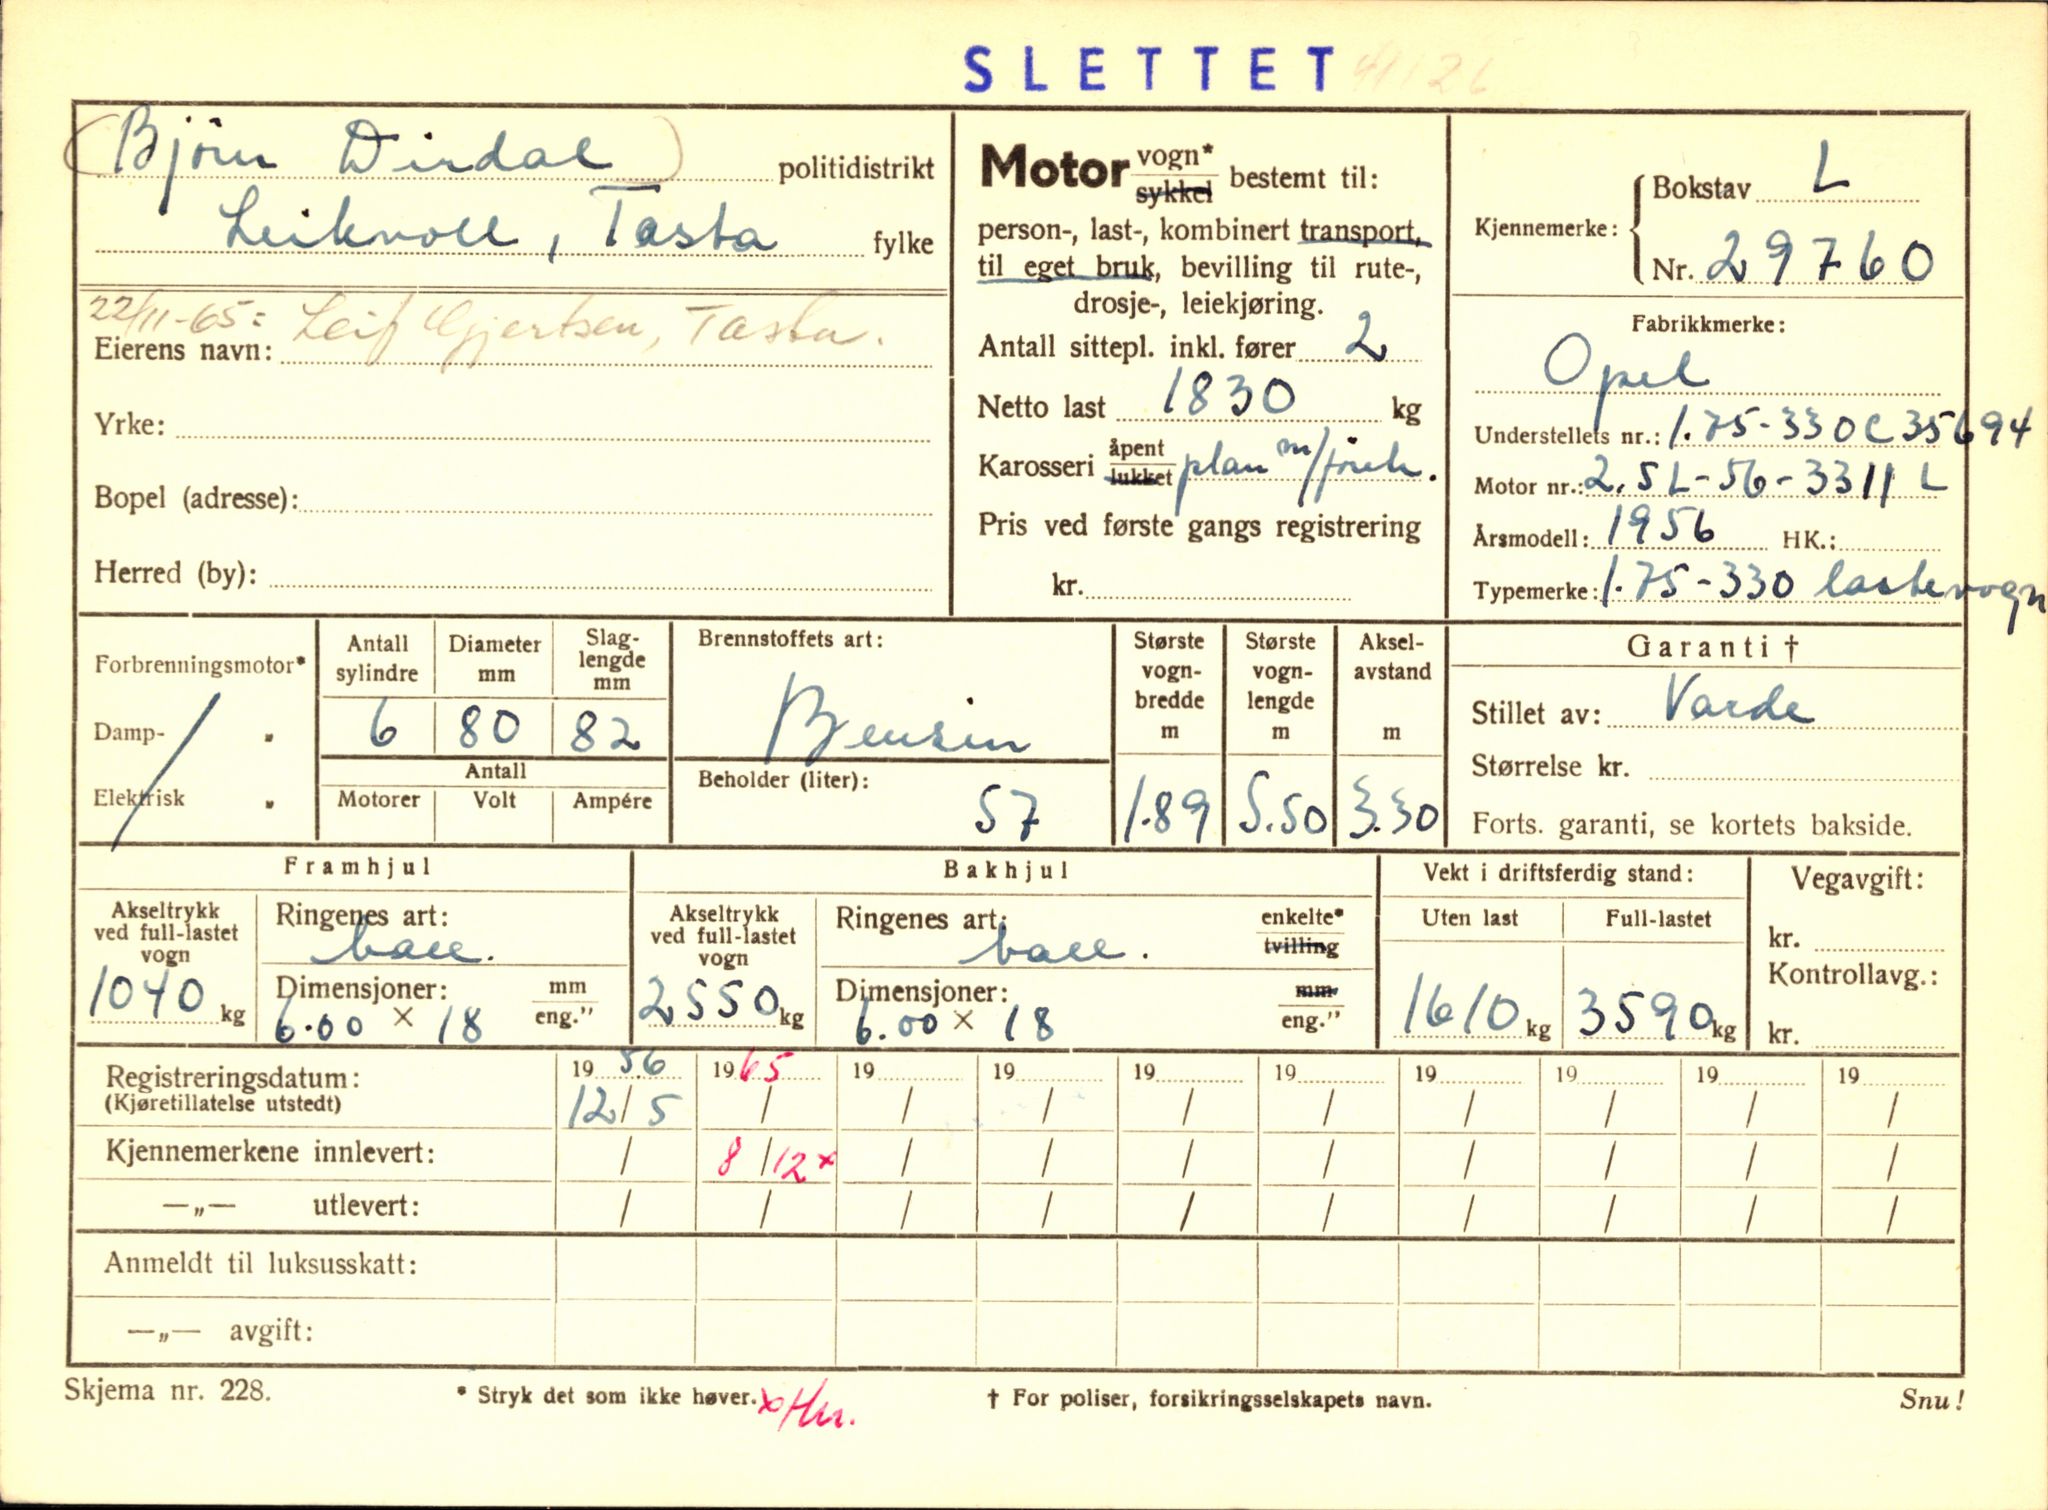 SLETTET
(Bjørn Dirdal) politidistrikt
Leikvoll, Tasta fylke
22/11-65: Leif Gjertsen, Tasta.
Eierens navn:
Yrke:
Bopel (adresse):
Herred (by):
Motor vogn* sykkel bestemt til:
person-, last-, kombinert transport,
til eget bruk, bevilling til rute-,
drosje-, leiekjøring.
Antall sittepl. inkl. fører 2
Netto last 1830 kg
Karosseri åpent lukket plan m/förerh.
Pris ved første gangs registrering
kr.
Kjennemerke: Bokstav L
Nr. 29760
Fabrikkmerke:
Opel
Understellets nr.: 1.75-330C35694
Motor nr.: 2.5L-56-3311L
Årsmodell: 1956 HK.:
Typemerke: 1.75-330 lastevogn
Forbrenningsmotor*
Damp- „
Elektrisk „
Antall sylindre 6
Diameter mm 80
Slag-lengde mm 82
Antall
Motorer Volt Ampére
Brennstoffets art:
Bensin
Beholder (liter): 57
Største vogn-bredde m 1.89
Største vogn-lengde m 5.50
Aksel-avstand m 3.30
Garanti †
Stillet av: Varde
Størrelse kr.
Forts. garanti, se kortets bakside.
Framhjul
Akseltrykk ved full-lastet vogn 1040 kg
Ringenes art: ball.
Dimensjoner: mm eng."
6.00 × 18
Bakhjul
Akseltrykk ved full-lastet vogn 2550 kg
Ringenes art: ball. enkelte* tvilling
Dimensjoner: mm eng."
6.00 × 18
Vekt i driftsferdig stand:
Uten last Full-lastet
1610 kg 3590 kg
Vegavgift:
kr.
Kontrollavg.:
kr.
Registreringsdatum: 19 56 19 65 19 19 19 19 19 19 19 19
(Kjøretillatelse utstedt) 12/5 / / / / / / / / /
Kjennemerkene innlevert: / 8/12 x / / / / / / / /
—„— utlevert: / / / / / / / / / /
Anmeldt til luksusskatt:
—„— avgift:
Skjema nr. 228. * Stryk det som ikke høver. † For poliser, forsikringsselskapets navn. Snu!